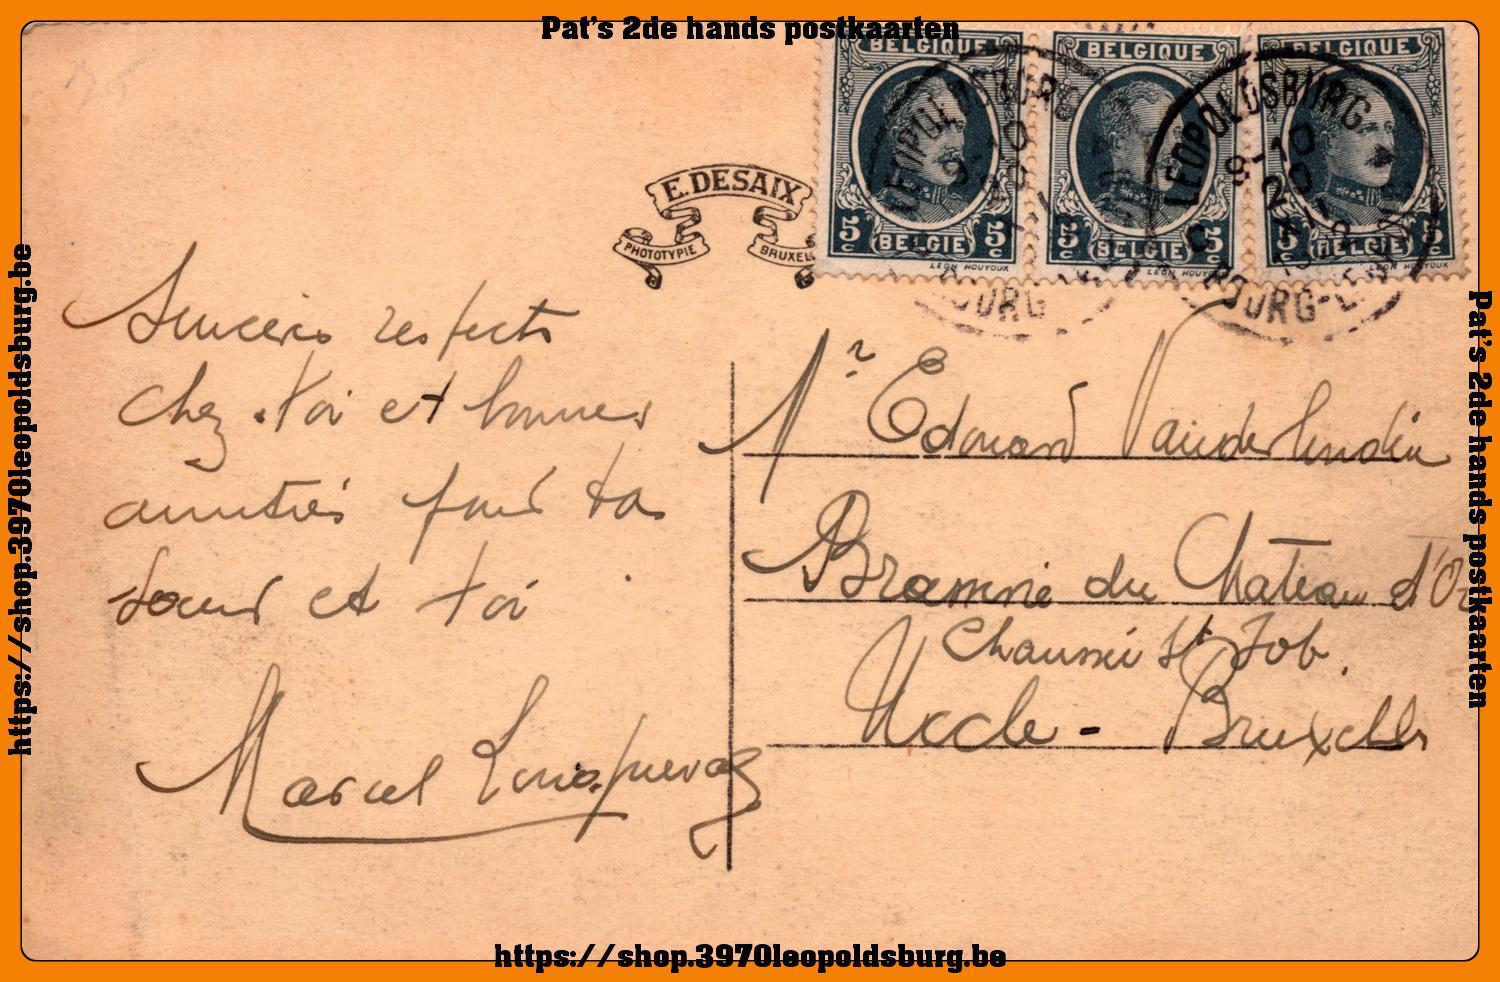 Pat's 2de hands postkaarten
BELGIQUE
BELGIQUE
BELGIQUE
LEOPOLDSBURG
LEOPOLDSBURG
9-10
9-10
20
20
5c BELGIE 5c
5c BELGIE 5c
5c BELGIE 5c
LEON HOUYOUX
LEON HOUYOUX
LEON HOUYOUX
BOURG
BOURG-
E. DESAIX
PHOTOTYPIE
BRUXEL
Sincères respects
chez toi et bonnes
amitiés pour ta
soeur et toi
Marcel
Mr Edouard Vanderlinden
Brasserie du Chateau d'Or
Chaussée St Job.
Uccle - Bruxelles
https://shop.3970leopoldsburg.be
Pat's 2de hands postkaarten
https://shop.3970leopoldsburg.be